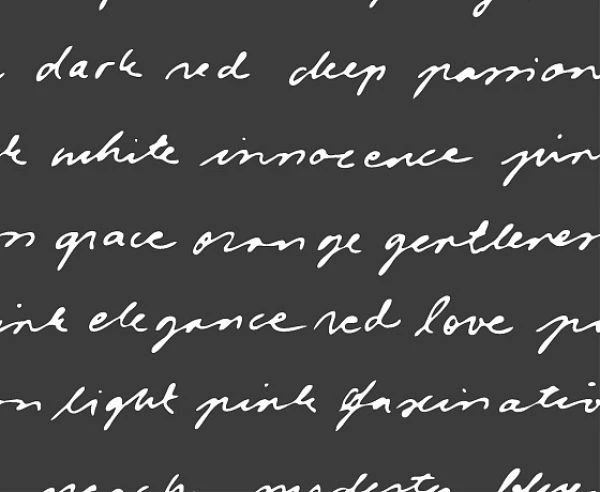 dark red deep passion
white innocence
grace orange gentleness
elegance red love
light pink fascinatio
peach modesty blue